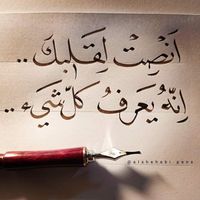 اَنصِتْ لِقَلبِكَ ..
اِنّهُ يَعرِفُ كلَّ شَيءٍ ..
@alshehabi.pens